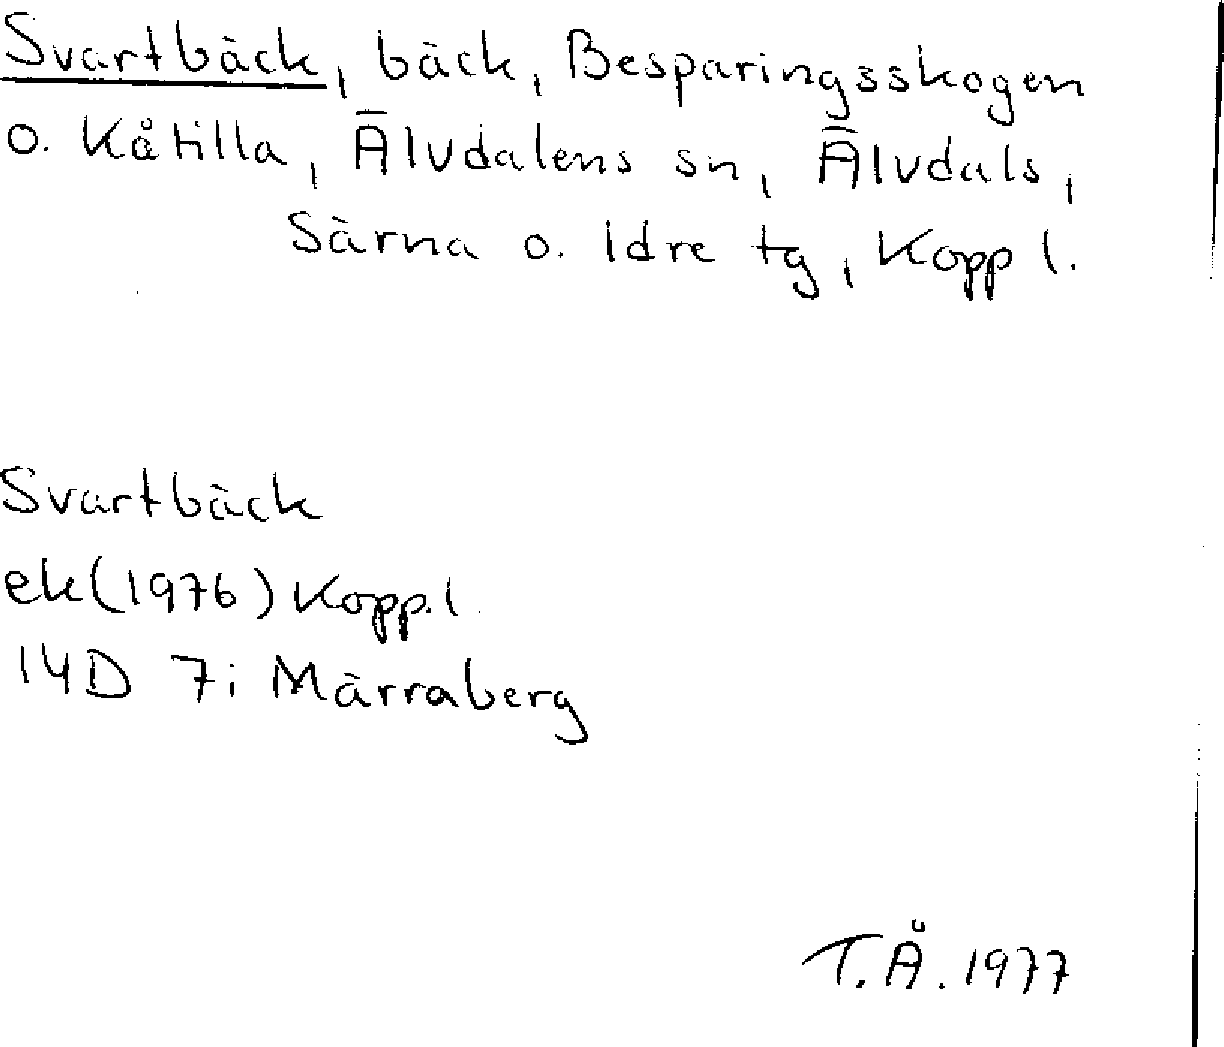 Svartbäck, bäck, Besparingsskogen
o. Kåtilla, Älvdalens sn, Älvdals,
Särna o. Idre tg, Kopp l.
Svartbäck
ek (1976) Kopp. l.
14D 7i Märraberg
T.Å. 1977